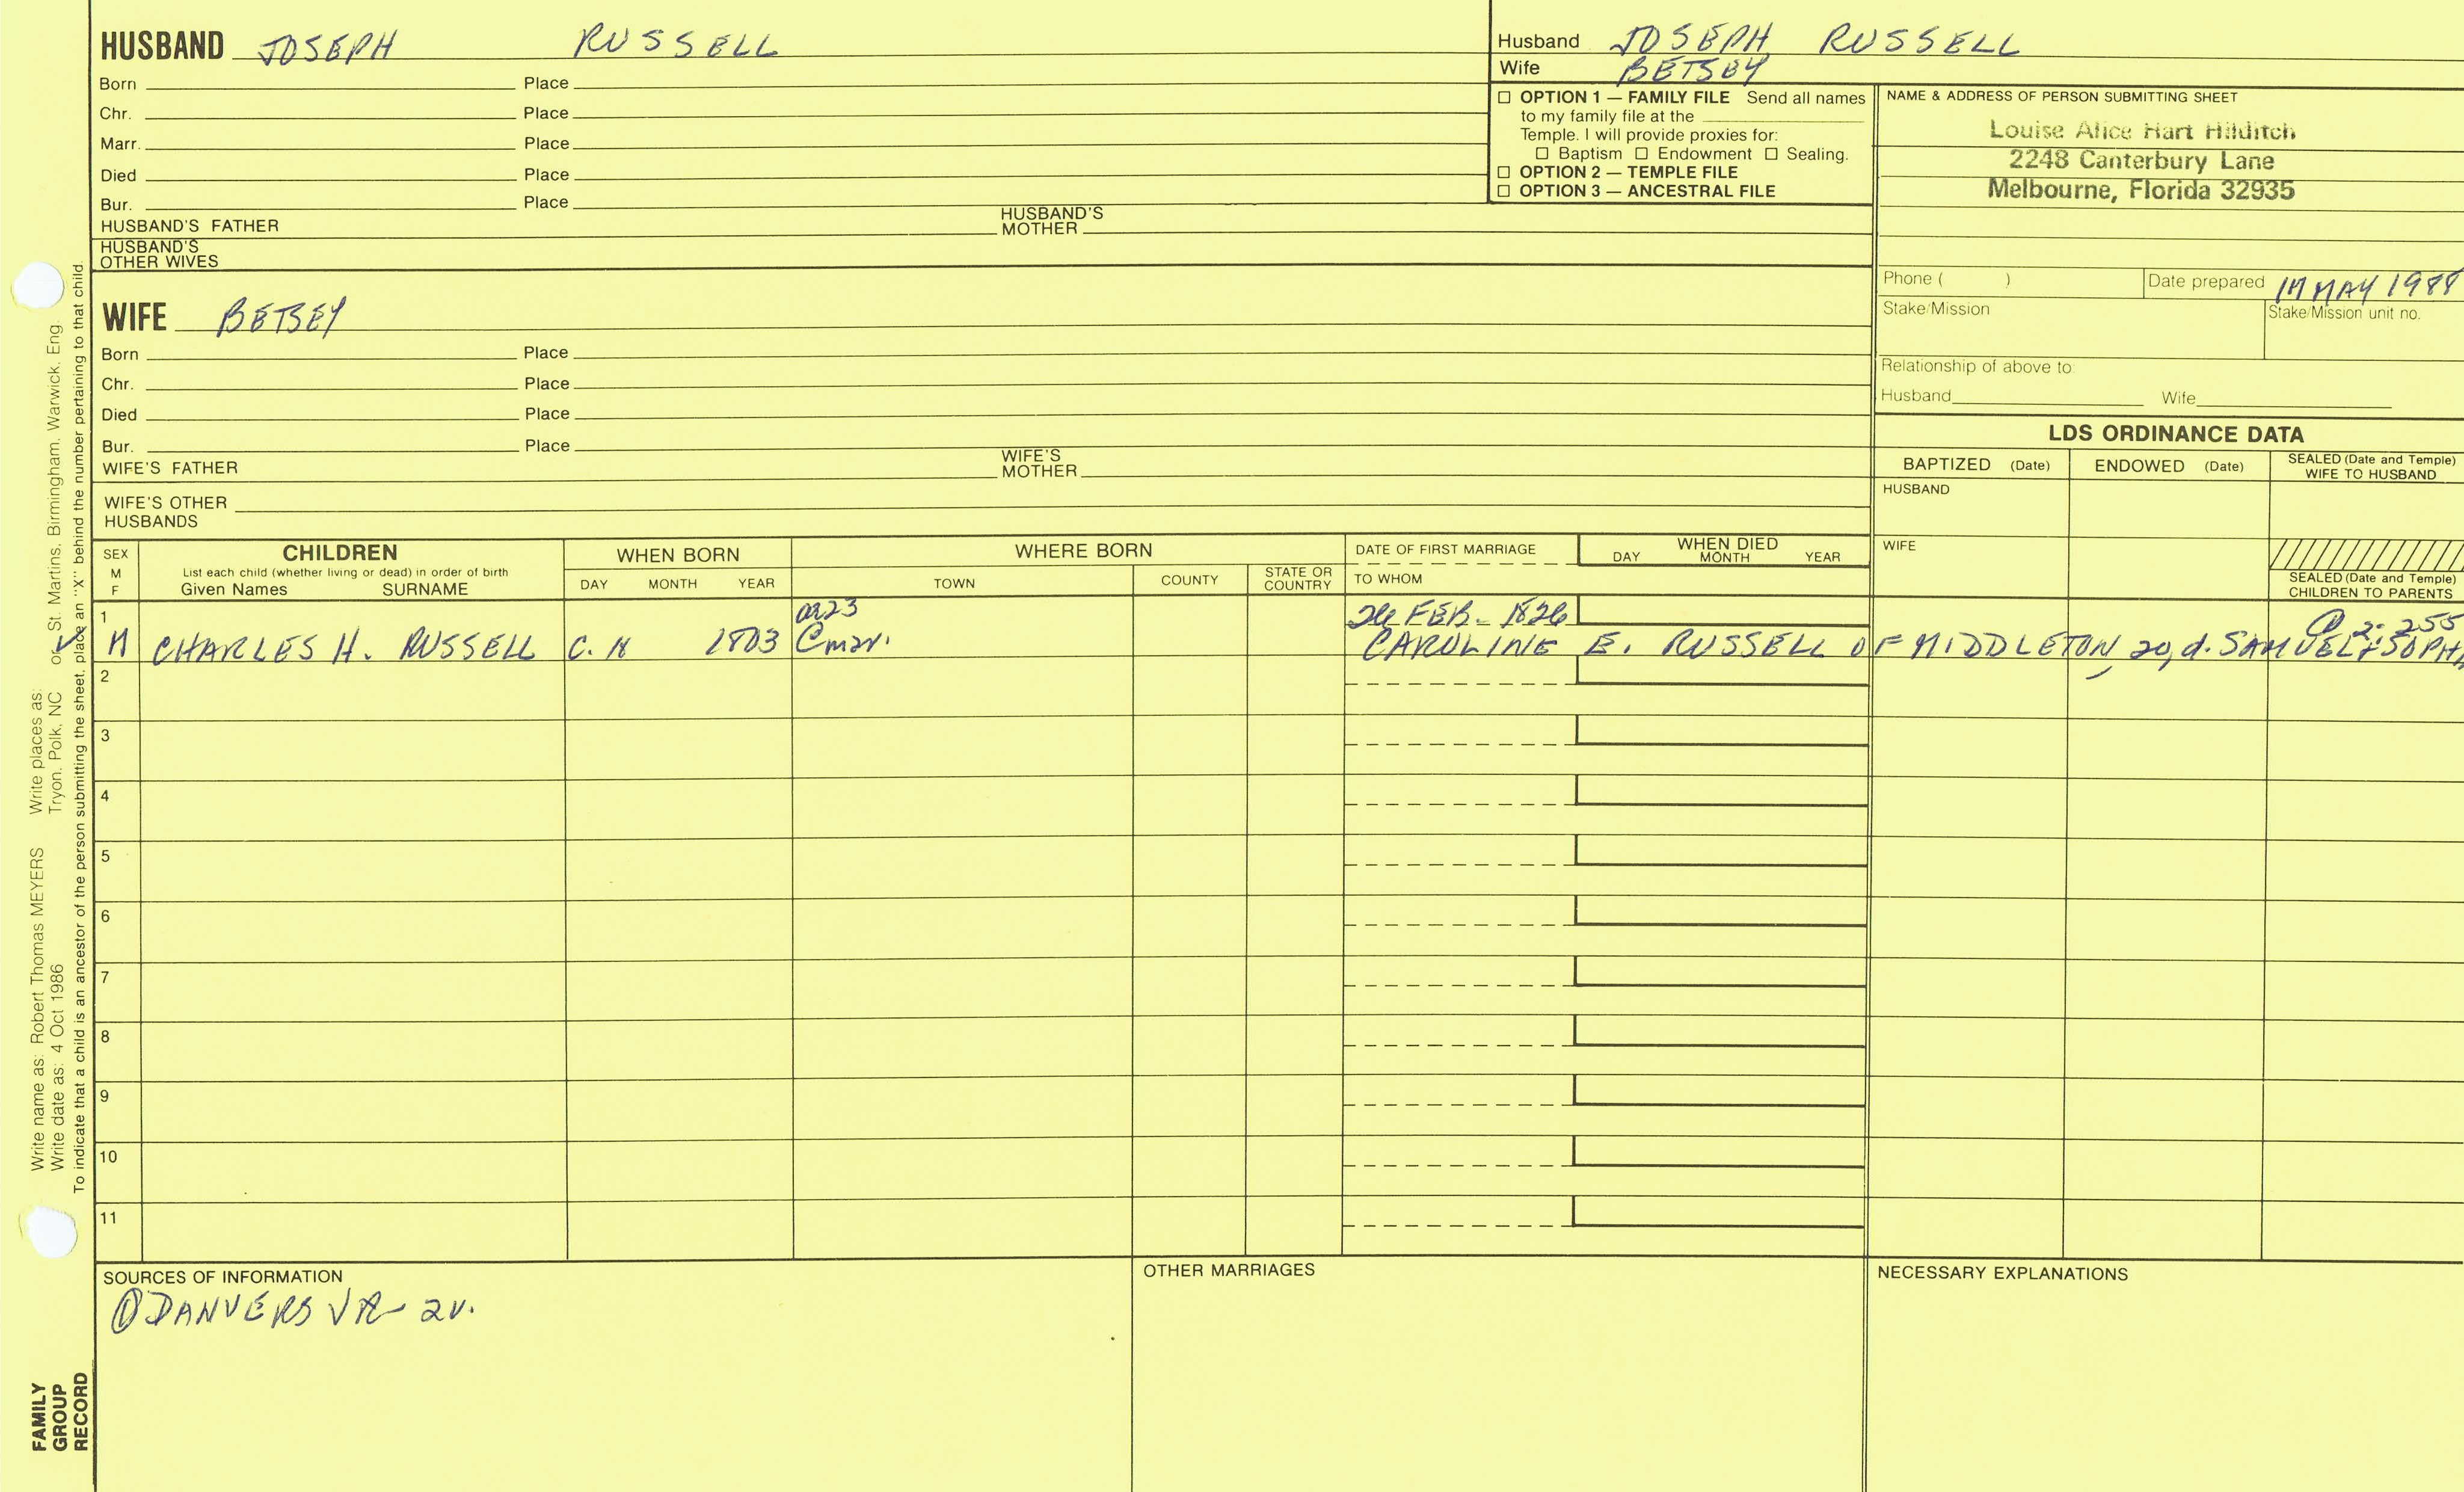 HUSBAND JOSEPH RUSSELL
Born Place
Chr. Place
Marr. Place
Died Place
Bur. Place
HUSBAND'S FATHER HUSBAND'S MOTHER
HUSBAND'S OTHER WIVES
Husband JOSEPH RUSSELL
Wife BETSEY
☐ OPTION 1 — FAMILY FILE Send all names
to my family file at the
Temple. I will provide proxies for:
☐ Baptism ☐ Endowment ☐ Sealing.
☐ OPTION 2 — TEMPLE FILE
☐ OPTION 3 — ANCESTRAL FILE
NAME & ADDRESS OF PERSON SUBMITTING SHEET
Louise Alice Hart Hilditch
2248 Canterbury Lane
Melbourne, Florida 32935
Phone ( ) Date prepared MAY 1988
Stake/Mission Stake/Mission unit no.
Relationship of above to:
Husband Wife
WIFE BETSEY
Born Place
Chr. Place
Died Place
Bur. Place
WIFE'S FATHER WIFE'S MOTHER
WIFE'S OTHER HUSBANDS
LDS ORDINANCE DATA
BAPTIZED (Date) ENDOWED (Date) SEALED (Date and Temple) WIFE TO HUSBAND
HUSBAND
WIFE
SEALED (Date and Temple) CHILDREN TO PARENTS
SEX M F
CHILDREN
List each child (whether living or dead) in order of birth
Given Names SURNAME
WHEN BORN
DAY MONTH YEAR
WHERE BORN
TOWN COUNTY STATE OR COUNTRY
DATE OF FIRST MARRIAGE
TO WHOM
WHEN DIED
DAY MONTH YEAR
1 26 FEB. 1826 2:255
M CHARLES H. RUSSELL 1803 CAROLINE E. RUSSELL OF MIDDLETON, 20, d. SAMUEL & SOPHIA
2
3
4
5
6
7
8
9
10
11
SOURCES OF INFORMATION
① DANVERS VR- 2V.
OTHER MARRIAGES
NECESSARY EXPLANATIONS
Write name as: Robert Thomas MEYERS Write places as:
Write date as: 4 Oct 1986 Tryon, Polk, NC or St. Martins, Birmingham, Warwick, Eng.
To indicate that a child is an ancestor of the person submitting the sheet, place an "X" behind the number pertaining to that child.
FAMILY
GROUP
RECORD